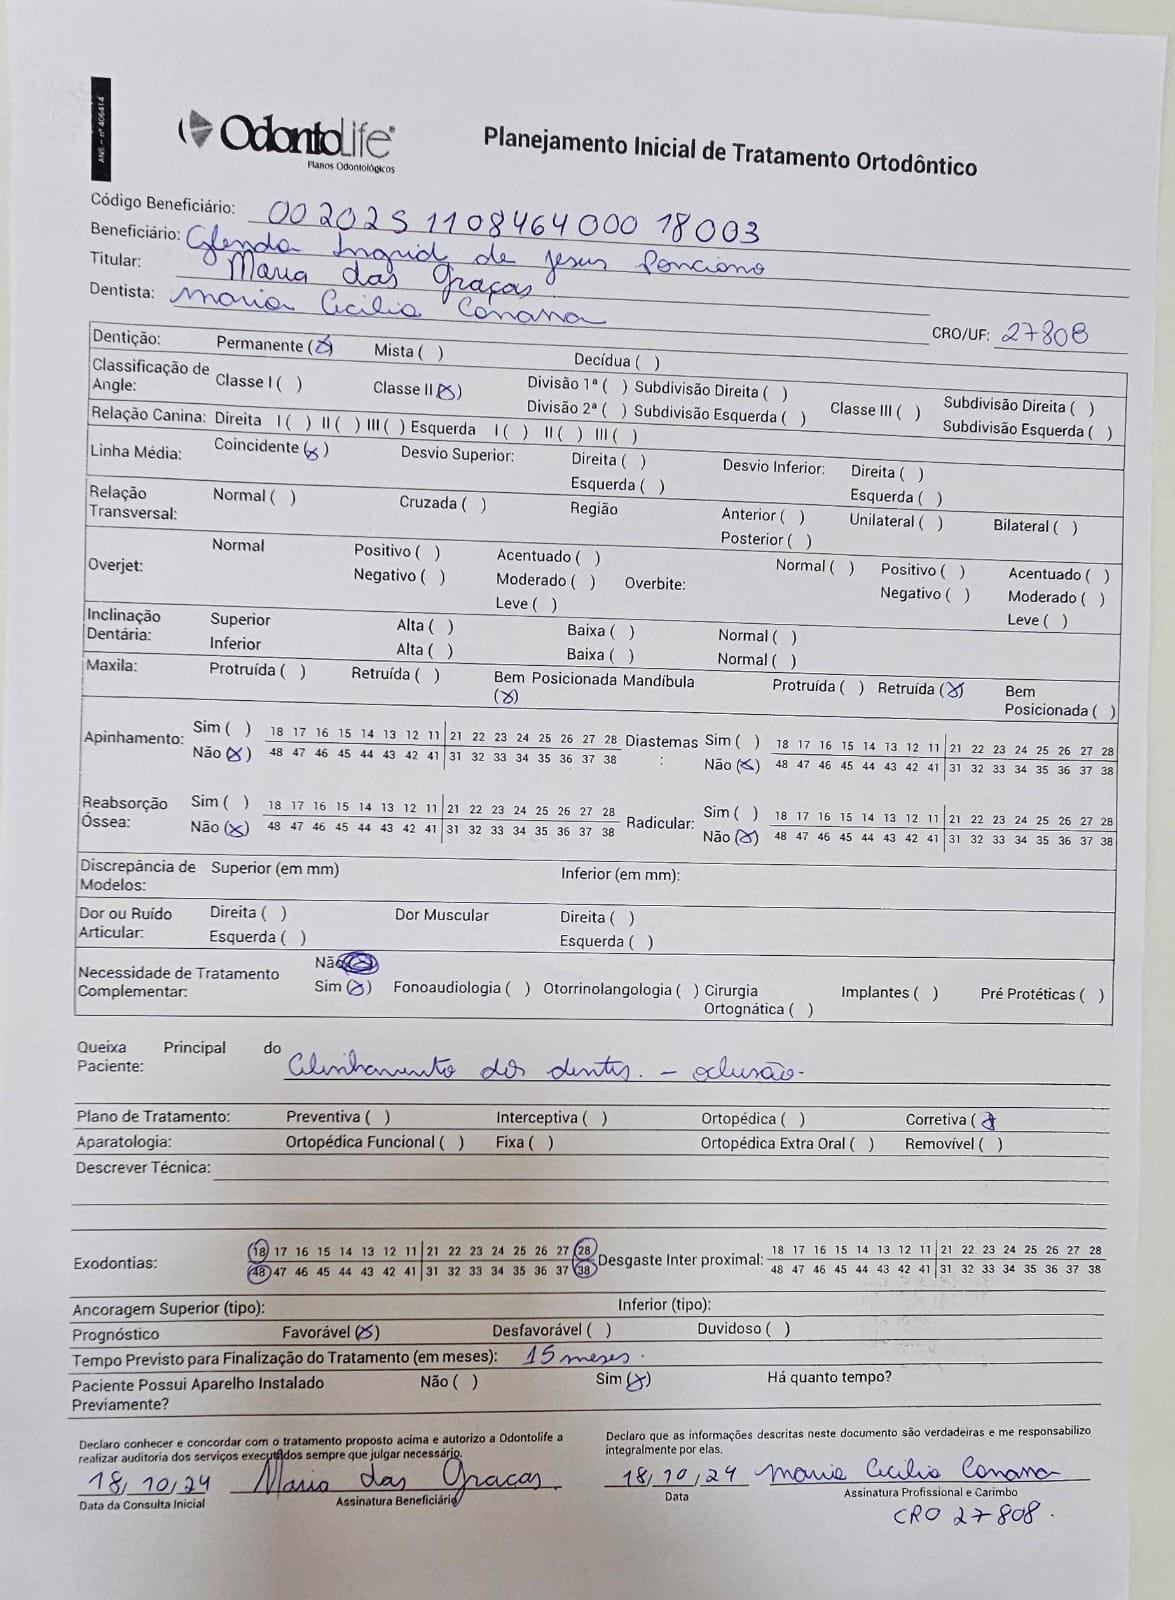 ANS - nº 406414
OdontoLife®
Planos Odontológicos
Planejamento Inicial de Tratamento Ortodôntico
Código Beneficiário: 00 202S 1108464000 18003
Beneficiário: Glenda Ingrid de Jesus Ponciano
Titular: Maria das Graças
Dentista: Maria Cecilia Canana
CRO/UF: 27808
Dentição: Permanente (X) Mista ( ) Decídua ( )
Classificação de Angle: Classe I ( ) Classe II (X) Divisão 1ª ( ) Subdivisão Direita ( ) Classe III ( ) Subdivisão Direita ( )
Divisão 2ª ( ) Subdivisão Esquerda ( ) Subdivisão Esquerda ( )
Relação Canina: Direita I ( ) II ( ) III ( ) Esquerda I ( ) II ( ) III ( )
Linha Média: Coincidente (X) Desvio Superior: Direita ( ) Desvio Inferior: Direita ( )
Esquerda ( ) Esquerda ( )
Relação Transversal: Normal ( ) Cruzada ( ) Região Anterior ( ) Unilateral ( ) Bilateral ( )
Posterior ( )
Overjet: Normal Positivo ( ) Acentuado ( ) Overbite: Normal ( ) Positivo ( ) Acentuado ( )
Negativo ( ) Moderado ( ) Negativo ( ) Moderado ( )
Leve ( ) Leve ( )
Inclinação Dentária: Superior Alta ( ) Baixa ( ) Normal ( )
Inferior Alta ( ) Baixa ( ) Normal ( )
Maxila: Protruída ( ) Retruída ( ) Bem Posicionada (X) Mandíbula Protruída ( ) Retruída (X) Bem Posicionada ( )
Apinhamento: Sim ( ) 18 17 16 15 14 13 12 11 21 22 23 24 25 26 27 28 Diastemas : Sim ( ) 18 17 16 15 14 13 12 11 21 22 23 24 25 26 27 28
Não (X) 48 47 46 45 44 43 42 41 31 32 33 34 35 36 37 38 Não (X) 48 47 46 45 44 43 42 41 31 32 33 34 35 36 37 38
Reabsorção Óssea: Sim ( ) 18 17 16 15 14 13 12 11 21 22 23 24 25 26 27 28 Radicular: Sim ( ) 18 17 16 15 14 13 12 11 21 22 23 24 25 26 27 28
Não (X) 48 47 46 45 44 43 42 41 31 32 33 34 35 36 37 38 Não (X) 48 47 46 45 44 43 42 41 31 32 33 34 35 36 37 38
Discrepância de Modelos: Superior (em mm) Inferior (em mm):
Dor ou Ruído Articular: Direita ( ) Dor Muscular Direita ( )
Esquerda ( ) Esquerda ( )
Necessidade de Tratamento Complementar: Não (X)
Sim (X) Fonoaudiologia ( ) Otorrinolangologia ( ) Cirurgia Ortognática ( ) Implantes ( ) Pré Protéticas ( )
Queixa Principal do Paciente: Alinhamento dos dentes. - oclusão-
Plano de Tratamento: Preventiva ( ) Interceptiva ( ) Ortopédica ( ) Corretiva (X
Aparatologia: Ortopédica Funcional ( ) Fixa ( ) Ortopédica Extra Oral ( ) Removível ( )
Descrever Técnica:
Exodontias: 18 17 16 15 14 13 12 11 21 22 23 24 25 26 27 28 Desgaste Inter proximal: 18 17 16 15 14 13 12 11 21 22 23 24 25 26 27 28
48 47 46 45 44 43 42 41 31 32 33 34 35 36 37 38 48 47 46 45 44 43 42 41 31 32 33 34 35 36 37 38
Ancoragem Superior (tipo): Inferior (tipo):
Prognóstico Favorável (X) Desfavorável ( ) Duvidoso ( )
Tempo Previsto para Finalização do Tratamento (em meses): 15 meses.
Paciente Possui Aparelho Instalado Previamente? Não ( ) Sim (X) Há quanto tempo?
Declaro conhecer e concordar com o tratamento proposto acima e autorizo a Odontolife a
realizar auditoria dos serviços executados sempre que julgar necessário.
Declaro que as informações descritas neste documento são verdadeiras e me responsabilizo
integralmente por elas.
18/10/24 Maria das Graças
Data da Consulta Inicial Assinatura Beneficiário
18/10/24 Maria Cecilia Canana
Data Assinatura Profissional e Carimbo
CRO 27808.